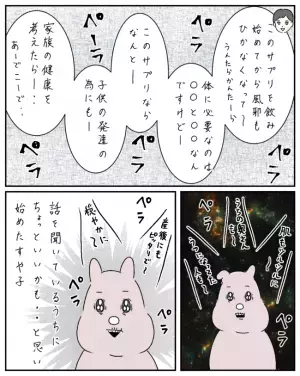 このサプリを飲み
始めてから風邪も
ひかなくなって〜
うんたらかんたーら
体に必要なのは
〇〇と〇〇なん
ですけどー
このサプリなら
なんとー
子供の発達の
為にもー
家族の健康を
考えたらー・・
あーでこーで・・
ペラ
ペラ
ペーラ
ペーラ
肌もツルツルに
うるおって
ペラ
ペラ
産後にも
ピッタリで!
穏やかに〜
ペラ
ペラ
話を聞いているうちに
ちょっといいかも...と思い
始めたすや子